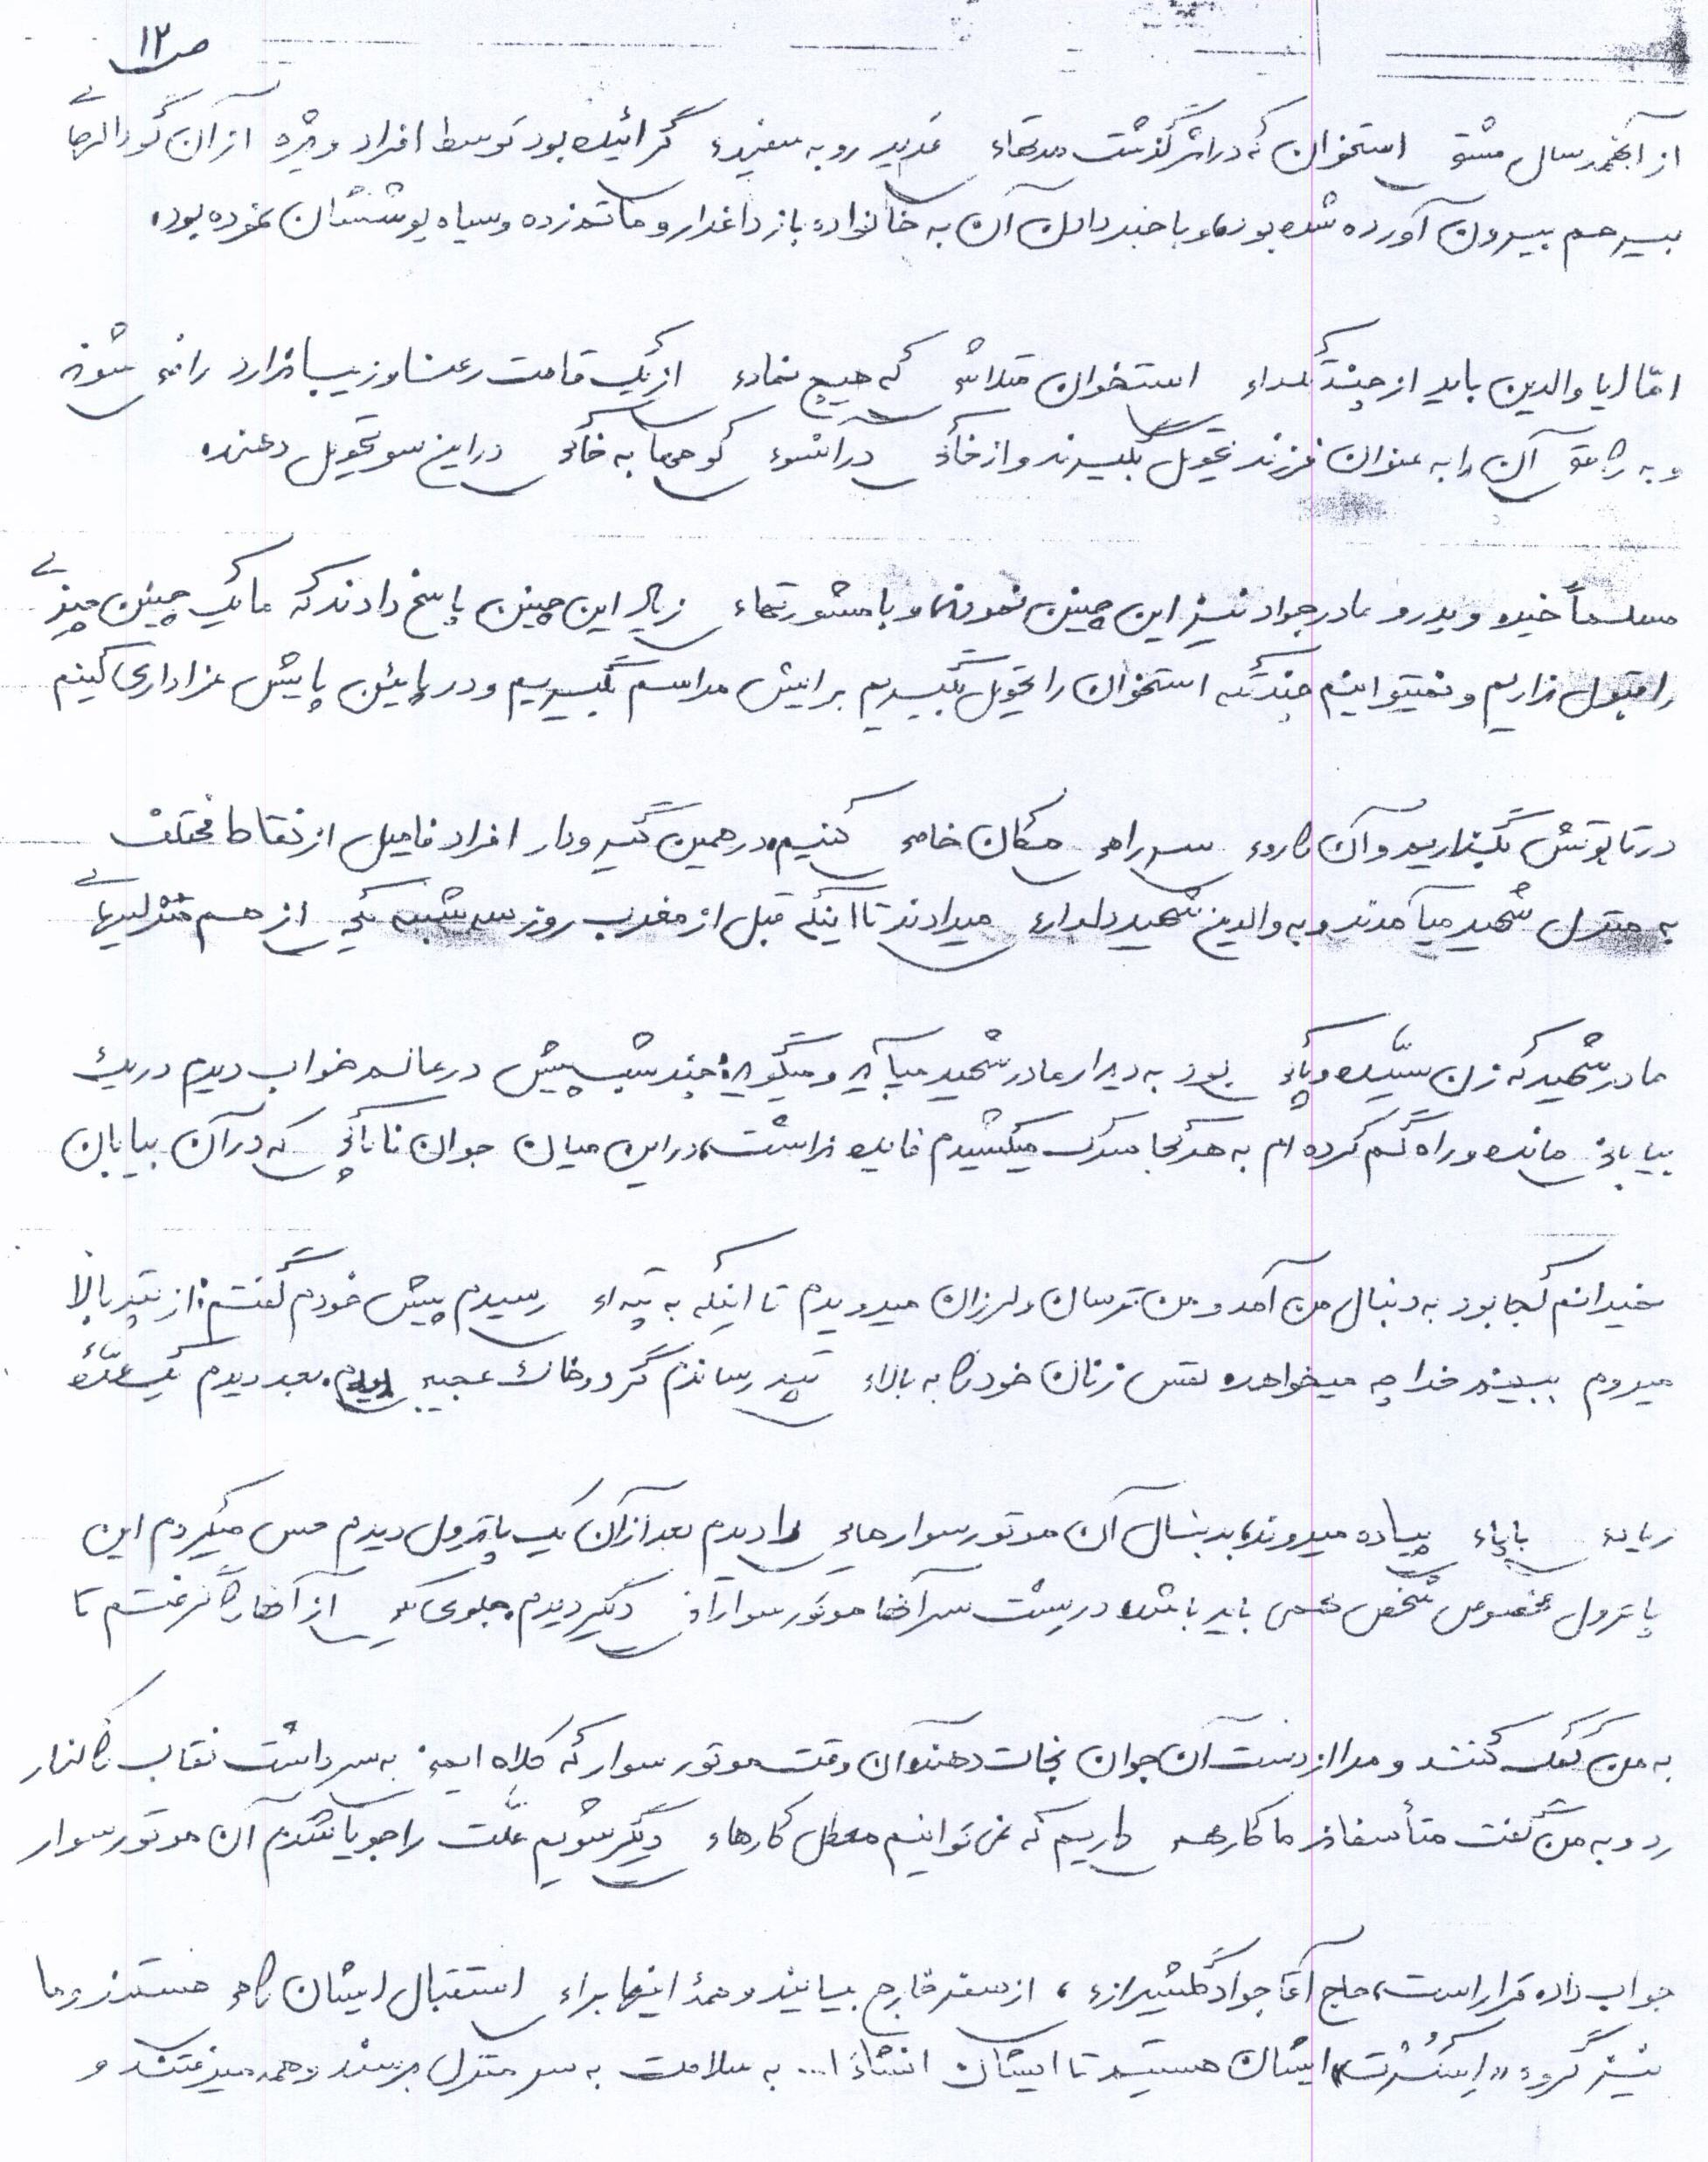 ص ۱۲
از آنجمله سال مشتی استخوان که در اثر گذشت مدتهای مدید رو به سفیدی گرائیده بود توسط افراد ویژه از آن گودالهای
بیرحم بیرون آورده شده بودند و با خبر دادن آن به خانواده باز داغدار و ماتم زده و سیاه پوششان نموده بود.
امّا آیا والدین باید از چند تکه استخوان متلاشی که هیچ نمادی از یک قامت رعنا و زیبا ندارد راضی شوند
و به راحتی آن را به عنوان فرزند تحویل بگیرند و از خاکی در آنسوی کوهها به خاکی در این سو تحویل دهند.
مسلماً خیر. و پدر و مادر جواد نیز این چنین نمودند و با مشورتهای زیاد این چنین پاسخ دادند که ما یک چنین چیزی
را قبول نداریم و نمیتوانیم چند تکه استخوان را تحویل بگیریم برایش مراسم بگیریم و در پایین پایش عزاداری کنیم
در تابوتش بگذاریم و آن را روی سر راهی مکان خاصی کنیم. در همین گیر و دار افراد فامیل از نقاط مختلف
به منزل شهید میآمدند و به والدین شهید دلداری میدادند تا اینکه قبل از مغرب روز سه شنبه یکی از هم منزلیهای
مادر شهید که زن سیّده و پاکی بود به دیدار مادر شهید میآید و میگوید: چند شب پیش در عالم خواب دیدم در یک
بیابانی مانده و راه گم کرده ام به هر کجا سرک میکشیدم فایده نداشت، در این میان جوان ناپاکی که در آن بیابان
نمیدانم کجا بود به دنبال من آمد و من ترسان و لرزان میدویدم تا اینکه به تپه ای رسیدم پیش خودم گفتم: از تپه بالا
میروم ببینم خدا چه میخواهد. نفس زنان خود را به بالای تپه رساندم گرد و خاک عجیبی دیدم. بعد دیدم یک عدّه
زیادی با پای پیاده میروند، بدنبال آن موتور سوارهایی را دیدم بعد از آن یک پاترول دیدم حس میکردم این
پاترول مخصوص شخص مهمی باید باشد. در پشت سر آنها موتور سواران دیگر دیدم. جلوی یکی از آنها را گرفتم تا
به من کمک کنند و مرا از دست آن جوان نجات دهند. آن وقت موتور سوار که کلاه ایمنی به سر داشت نقاب را کنار
زد و به من گفت متأسفانه ما کار مهمی داریم که نمی توانیم معطل کارهای دیگر شویم علّت را جویا شدم آن موتور سوار
جواب داد. قرار است، حاج آقا جواد گلشیرازی، از سفر خارج بیایند و همهٔ اینها برای استقبال ایشان راهی هستند و ما
نیز گروه «اسکُرت» ایشان هستیم تا ایشان انشاءا... به سلامت به سر منزل برسند و همه میرفتند و